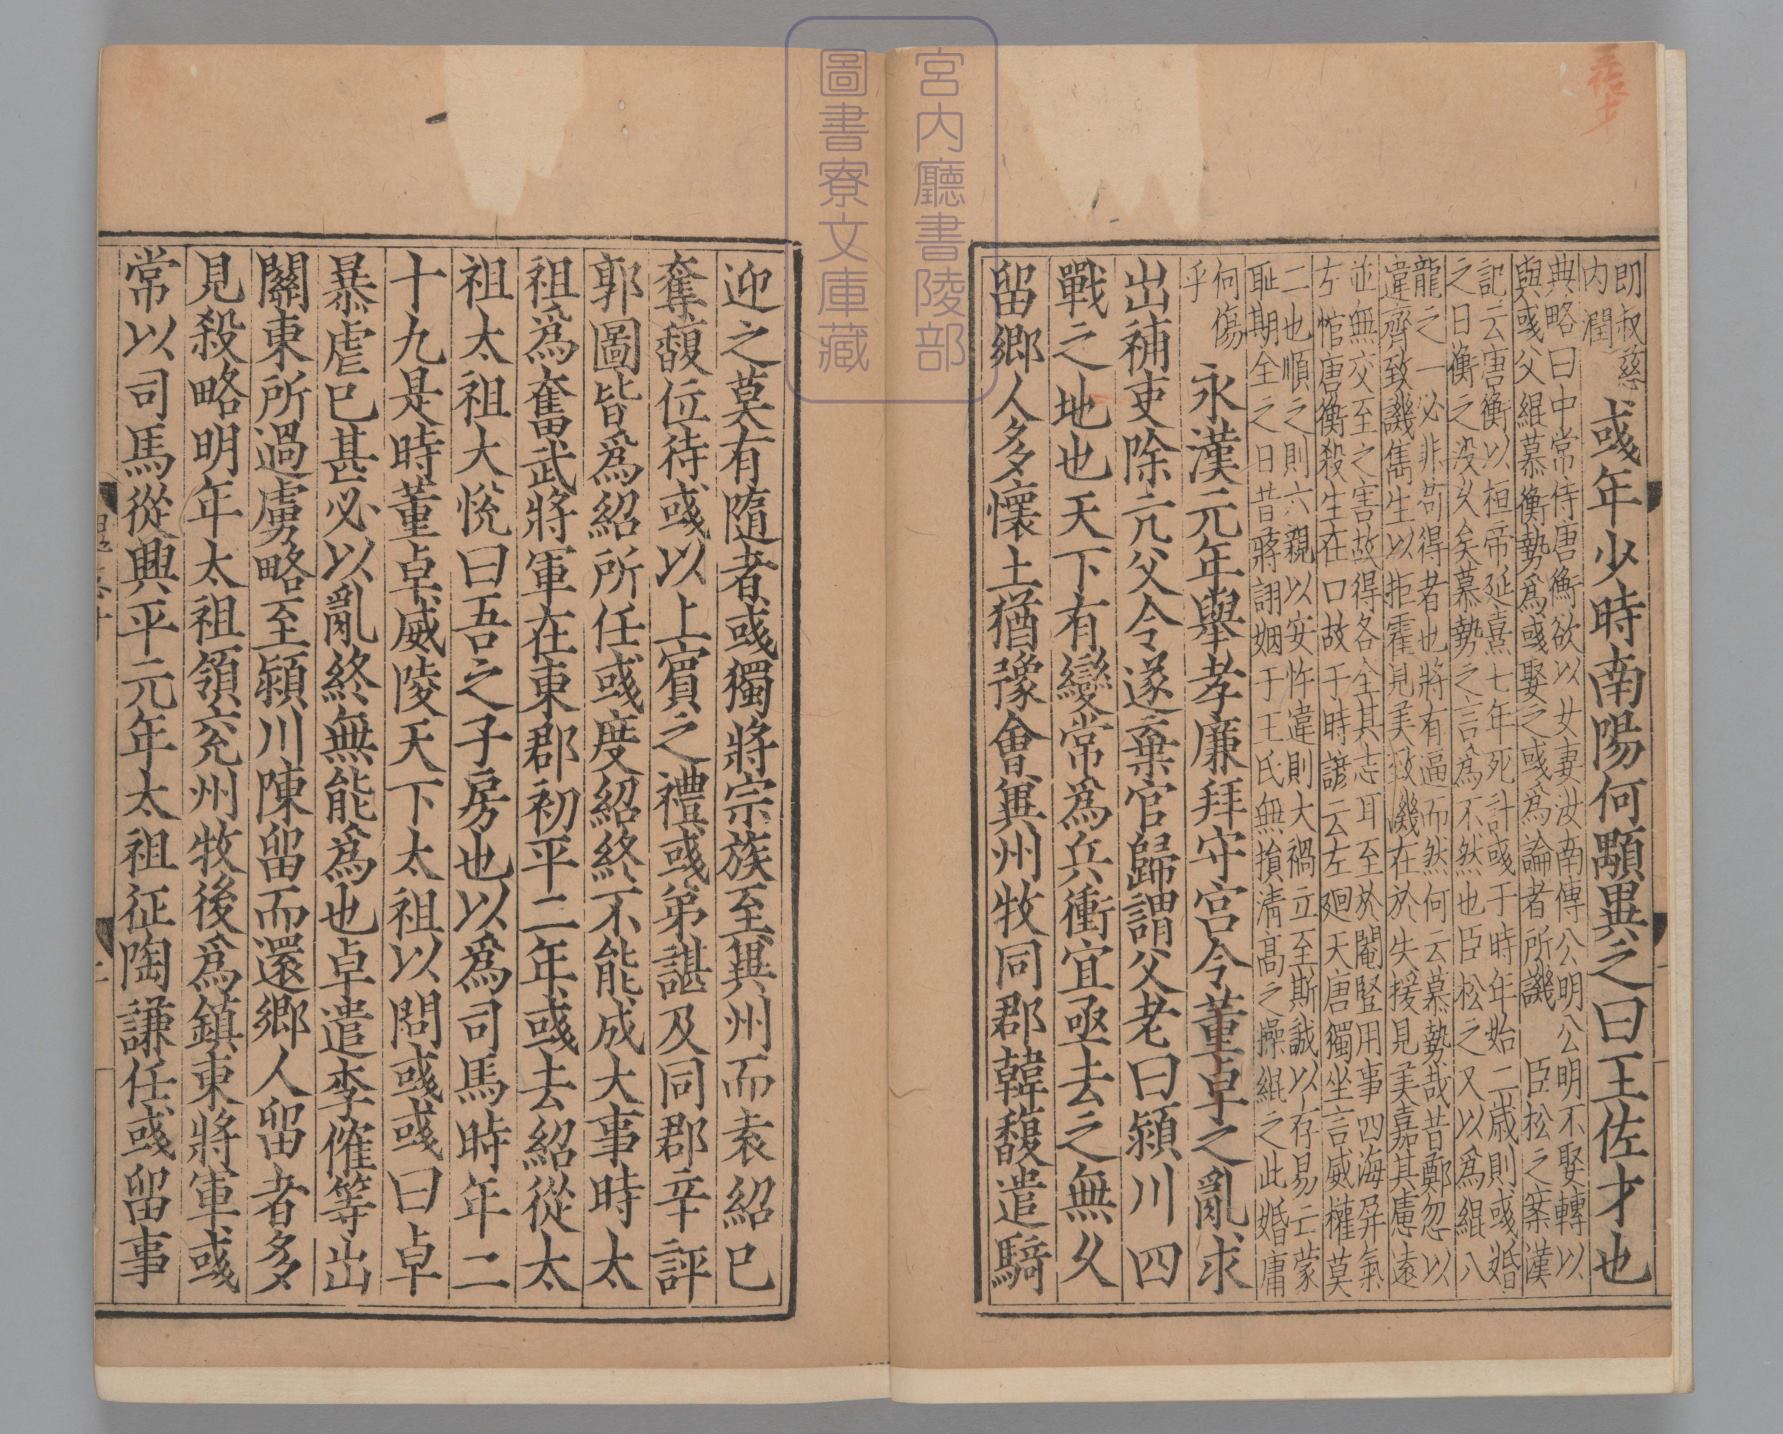 即叔慈
内潤
彧年少時南陽何顒異之曰王佐才也
典略曰中常侍唐衡欲以女妻汝南傅公明公明不娶轉以
與彧父緄慕衡勢爲彧娶之彧爲論者所譏　臣松之案漢
記云唐衡以桓帝延熹七年死計彧于時年始二歲則彧婚
之日衡之没乆矣慕勢之言爲不然也臣松之又以爲緄八
龍之一必非苟得者也將有逼而然何云慕勢哉昔鄭忽以
違齊致譏雋生以拒霍見美致譏在於失援見美嘉其慮遠
並無交至之害故得各全其志耳至於閹竪用事四海屏氣
左悺唐衡殺生在口故于時諺云左廻天唐獨坐言威權莫
二也順之則六親以安忤違則大禍立至斯誠以存易亡蒙
耻期全之日昔蔣詡姻于王氏無損清髙之操緄之此婚庸
何傷
乎
永漢元年舉孝廉拜守宮令董卓之亂求
出補吏除亢父令遂棄官歸謂父老曰潁川四
戰之地也天下有變常爲兵衝宜亟去之無乆
留鄉人多懷土猶豫會兾州牧同郡韓馥遣騎
迎之莫有隨者彧獨將宗族至兾州而袁紹已
奪馥位待彧以上賓之禮彧弟諶及同郡辛評
郭圖皆爲紹所任彧度紹終不能成大事時太
祖爲奮武將軍在東郡初平二年彧去紹從太
祖太祖大悅曰吾之子房也以爲司馬時年二
十九是時董卓威陵天下太祖以問彧彧曰卓
暴虐已甚必以亂終無能爲也卓遣李傕等出
關東所過虜略至潁川陳留而還鄉人留者多
見殺略明年太祖領兖州牧後爲鎮東將軍彧
常以司馬從興平元年太祖征陶謙任彧留事
宮内廳書陵部
圖書寮文庫藏